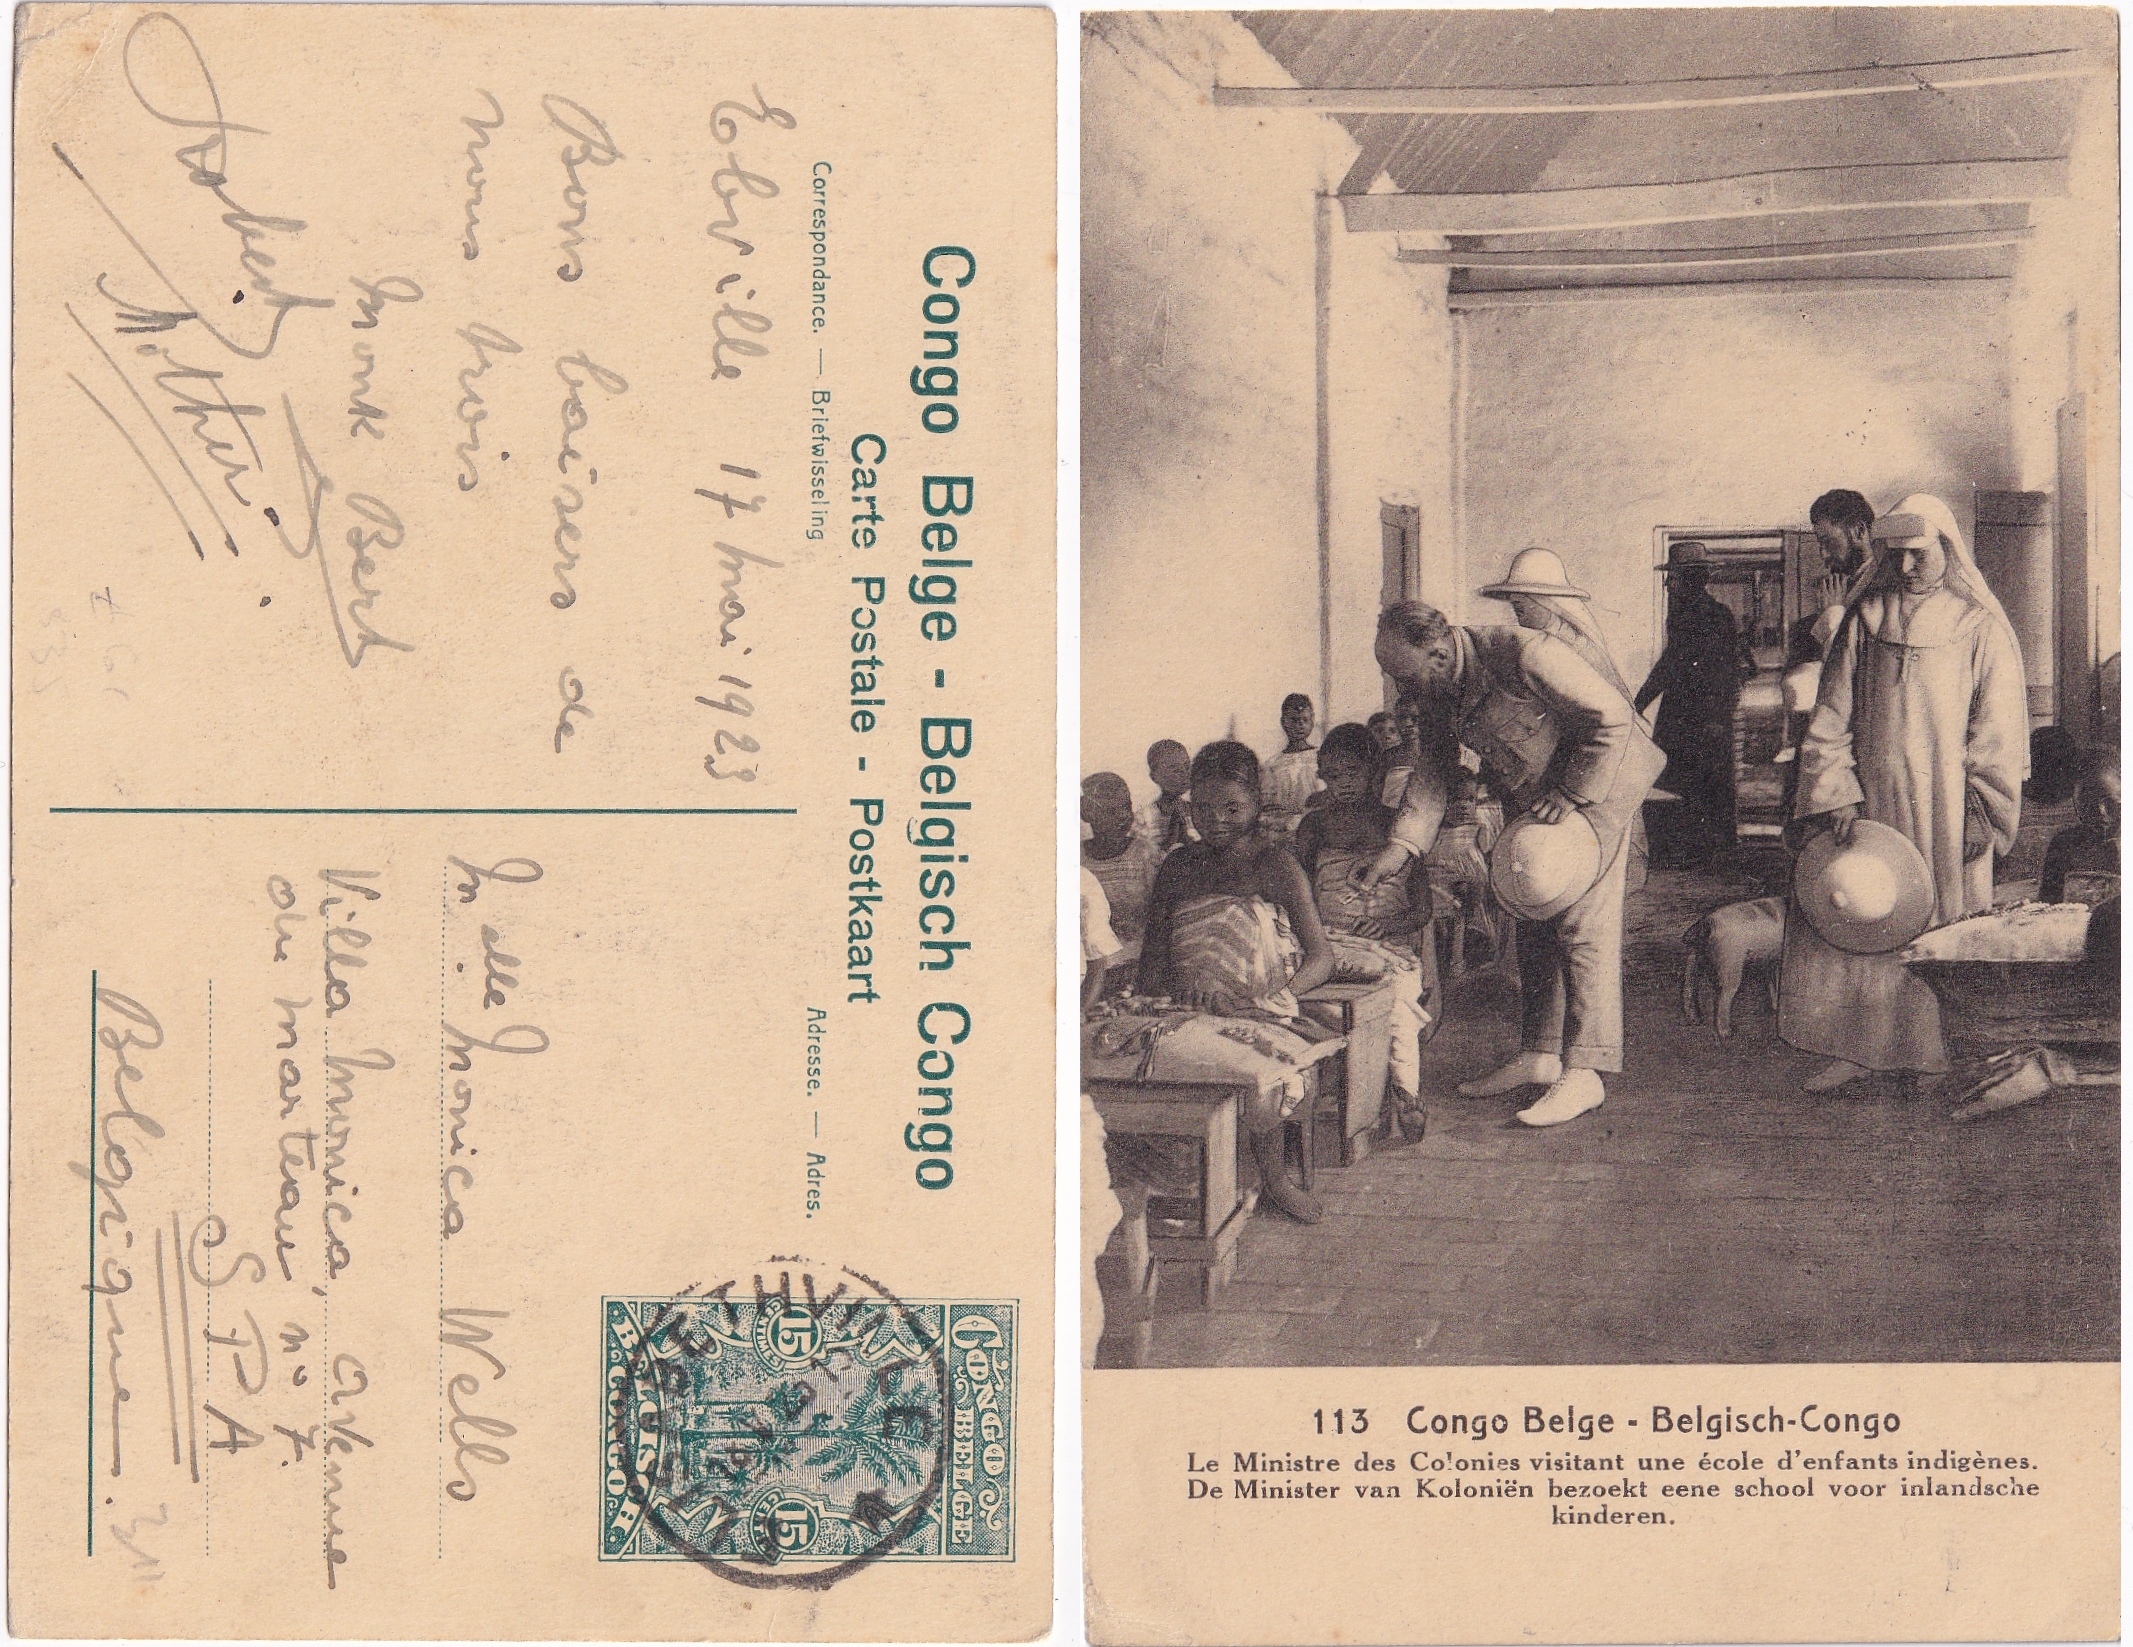 Congo Belge - Belgisch Congo
Carte Postale - Postkaart
Correspondance. — Briefwisseling
Adresse. — Adres.
E'bville 17 mai 1923
Bons baisers de
nous trois
Bert
Mother.
CONGO BELGE
15 CENTIMES
15 CENT
BELGISCH-CONGO
ELISABETHVILLE
Melle Monica Wells
Villa Monica, avenue
du marteau n° 7.
SPA
Belgique.
113 Congo Belge - Belgisch-Congo
Le Ministre des Colonies visitant une école d'enfants indigènes.
De Minister van Koloniën bezoekt eene school voor inlandsche
kinderen.